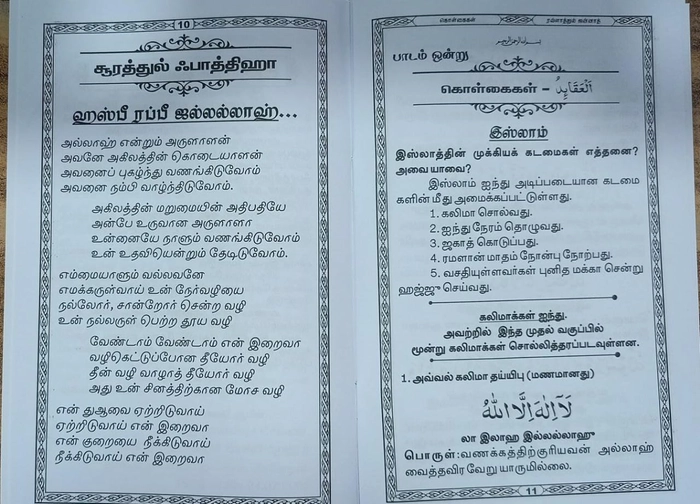 10
சூரத்துல் ஃபாத்திஹா
ஹஸ்பீ ரப்பீ ஜல்லல்லாஹ்...
அல்லாஹ் என்னும் அருளாளன்
அவனே அகிலத்தின் கொடையாளன்
அவனைப் புகழ்ந்து வணங்கிடுவோம்
அவனை நம்பி வாழ்ந்திடுவோம்.
அகிலத்தின் மறுமையின் அதிபதியே
அன்பே உருவான அருளாளா
உன்னையே நாளும் வணங்கிடுவோம்
உன் உதவியென்றும் தேடிடுவோம்.
எம்மையாளும் வல்லவனே
எமக்கருள்வாய் உன் நேர்வழியை
நல்லோர், சான்றோர் சென்ற வழி
உன் நல்லருள் பெற்ற தூய வழி
வேண்டாம் வேண்டாம் என் இறைவா
வழிகெட்டுப்போன தீயோர் வழி
தீன் வழி வாழாத் தீயோர் வழி
அது உன் சினத்திற்கான மோச வழி
என் துஆவை ஏற்றிடுவாய்
ஏற்றிடுவாய் என் இறைவா
என் குறையை நீக்கிடுவாய்
நீக்கிடுவாய் என் இறைவா
கொள்கைகள்
பாடம் ஒன்று
கொள்கைகள் - اَلْعَقَايِدُ
இஸ்லாம்
இஸ்லாத்தின் முக்கியக் கடமைகள் எத்தனை?
அவை யாவை?
இஸ்லாம் ஐந்து அடிப்படையான கடமை
களின் மீது அமைக்கப்பட்டுள்ளது.
1. கலிமா சொல்வது.
2. ஐந்து நேரம் தொழுவது.
3. ஜகாத் கொடுப்பது.
4. ரமளான் மாதம் நோன்பு நோற்பது.
5. வசதியுள்ளவர்கள் புனித மக்கா சென்று
ஹஜ்ஜு செய்வது.
கலிமாக்கள் ஐந்து.
அவற்றில் இந்த முதல் வகுப்பில்
மூன்று கலிமாக்கள் சொல்லித்தரப்படவுள்ளன.
1. அவ்வல் கலிமா தய்யிபு (மணமானது)
لَآ اِلٰهَ اِلَّا اللّٰهُ
லா இலாஹ இல்லல்லாஹு
பொருள்: வணக்கத்திற்குரியவன் அல்லாஹ்
வைத்தவிர வேறு யாருமில்லை.
11